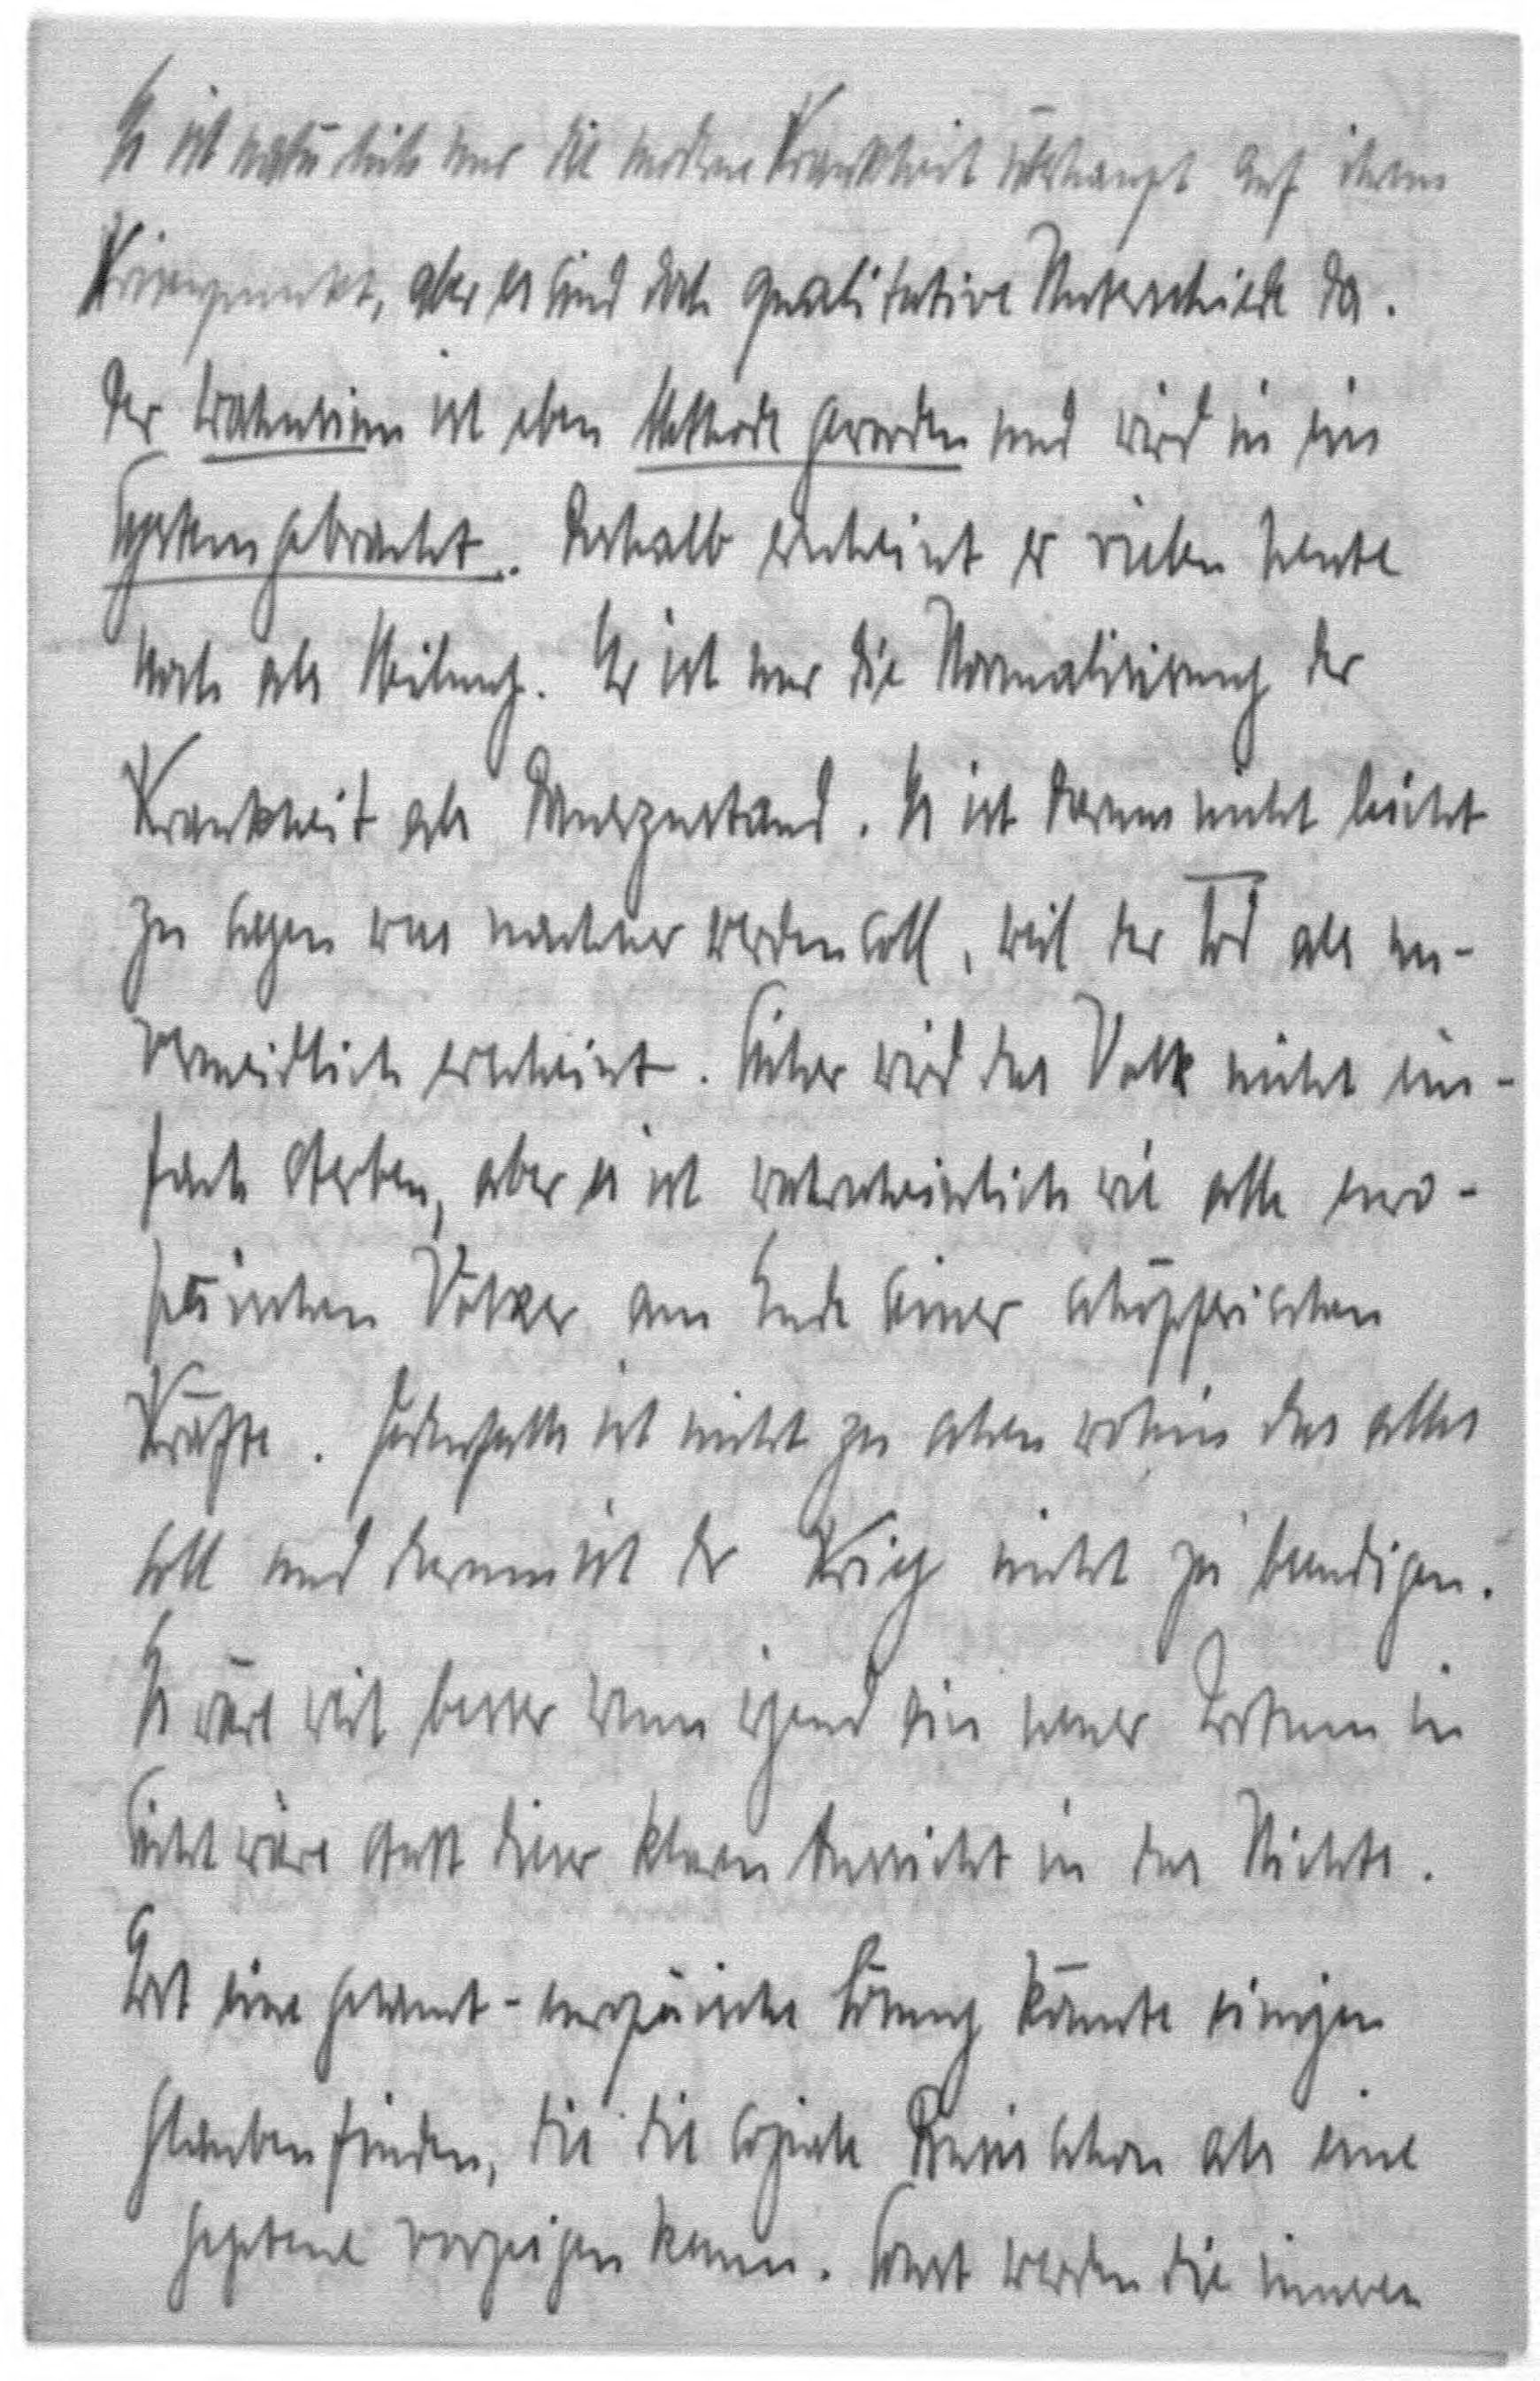 Es ist natürlich nur die moderne Krankheit überhaupt auf ihrem
Krisenpunkt, aber es sind doch qualitative Unterschiede da.
Der Wahnsinn ist eben Methode geworden und wird in ein
System gebracht. Deshalb erscheint er vielen heute
noch als Heilung. Er ist nur die Normalisierung der
Krankheit als Dauerzustand. Es ist darum nicht leicht
zu sagen was nachher werden soll, weil der Tod als un-
vermeidlich erscheint. Sicher wird das Volk nicht ein-
fach sterben, aber es ist wahrscheinlich wie alle euro-
päischen Völker am Ende seiner schöpferischen
Kräfte. Jedenfalls ist nicht zu sehen wohin das alles
soll und darum ist der Krieg nicht zu beendigen.
Es wäre weit besser wenn irgend ein neuer Irrtum in
Sicht wäre statt dieser klaren Aussicht in das Nichts.
Erst eine gesamt-europäische Lösung könnte einigen
Glauben finden, die die soziale Basis schon als eine
gegebene vorzeigen kann. Sonst werden die inneren